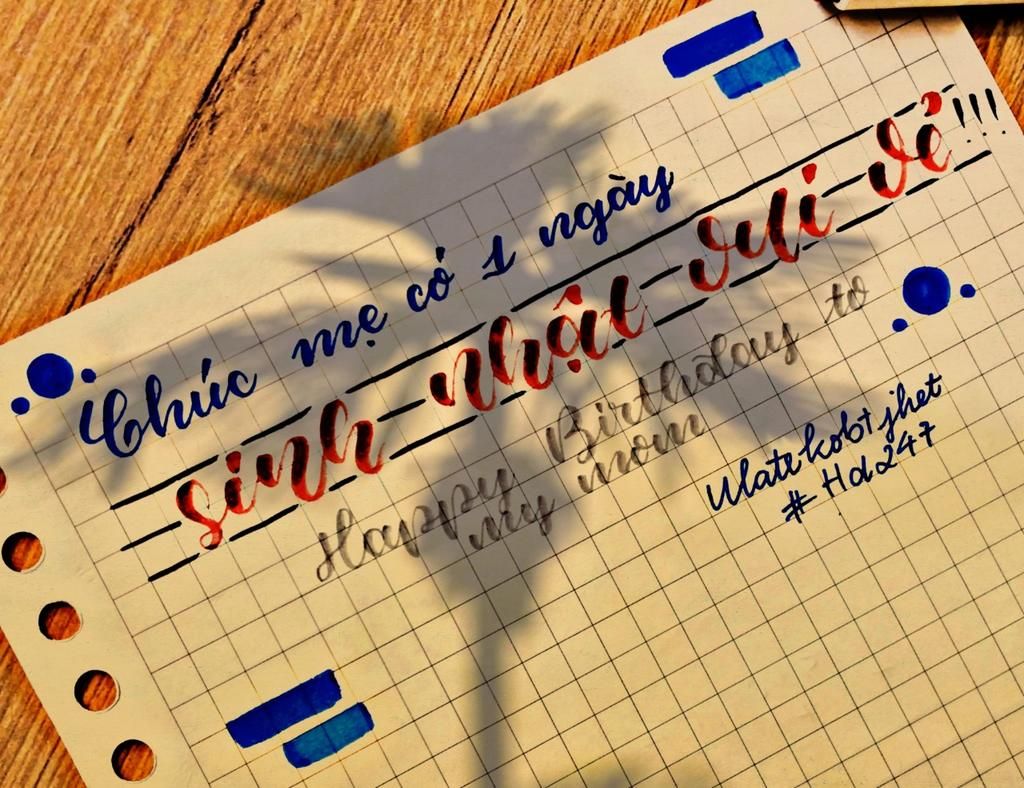 Chúc mẹ có 1 ngày
sinh nhật vui vẻ!!!
Happy Birthday to
my mom
# Hd247